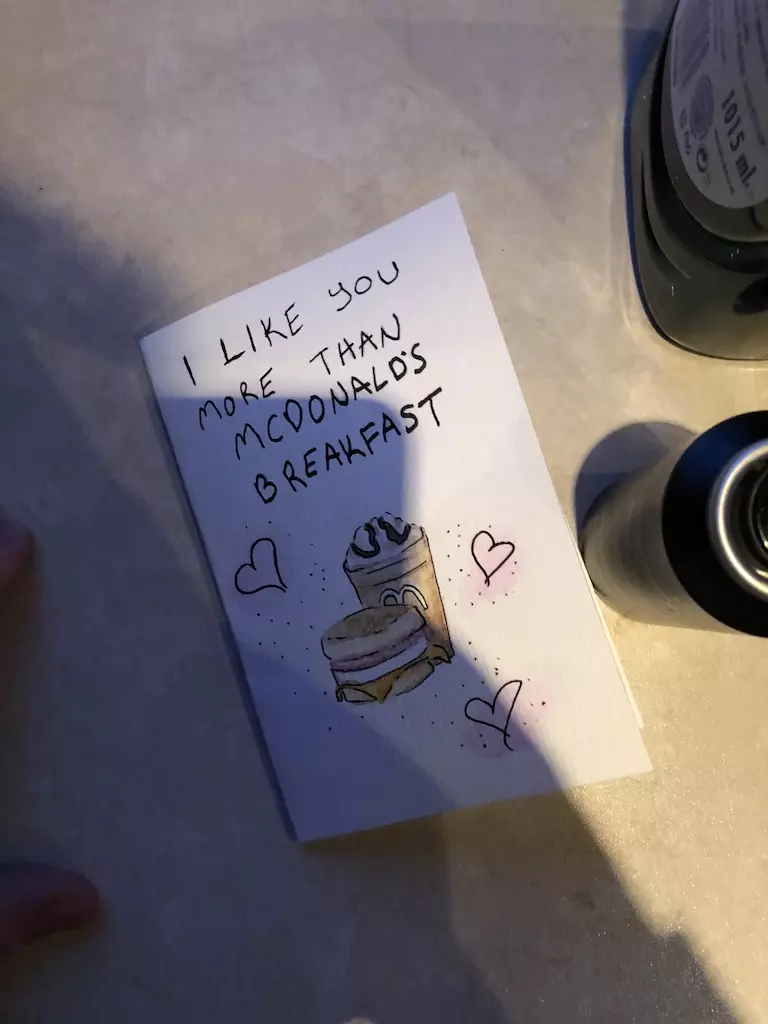 I LIKE YOU
MORE THAN
MCDONALD'S
BREAKFAST
1015 ml